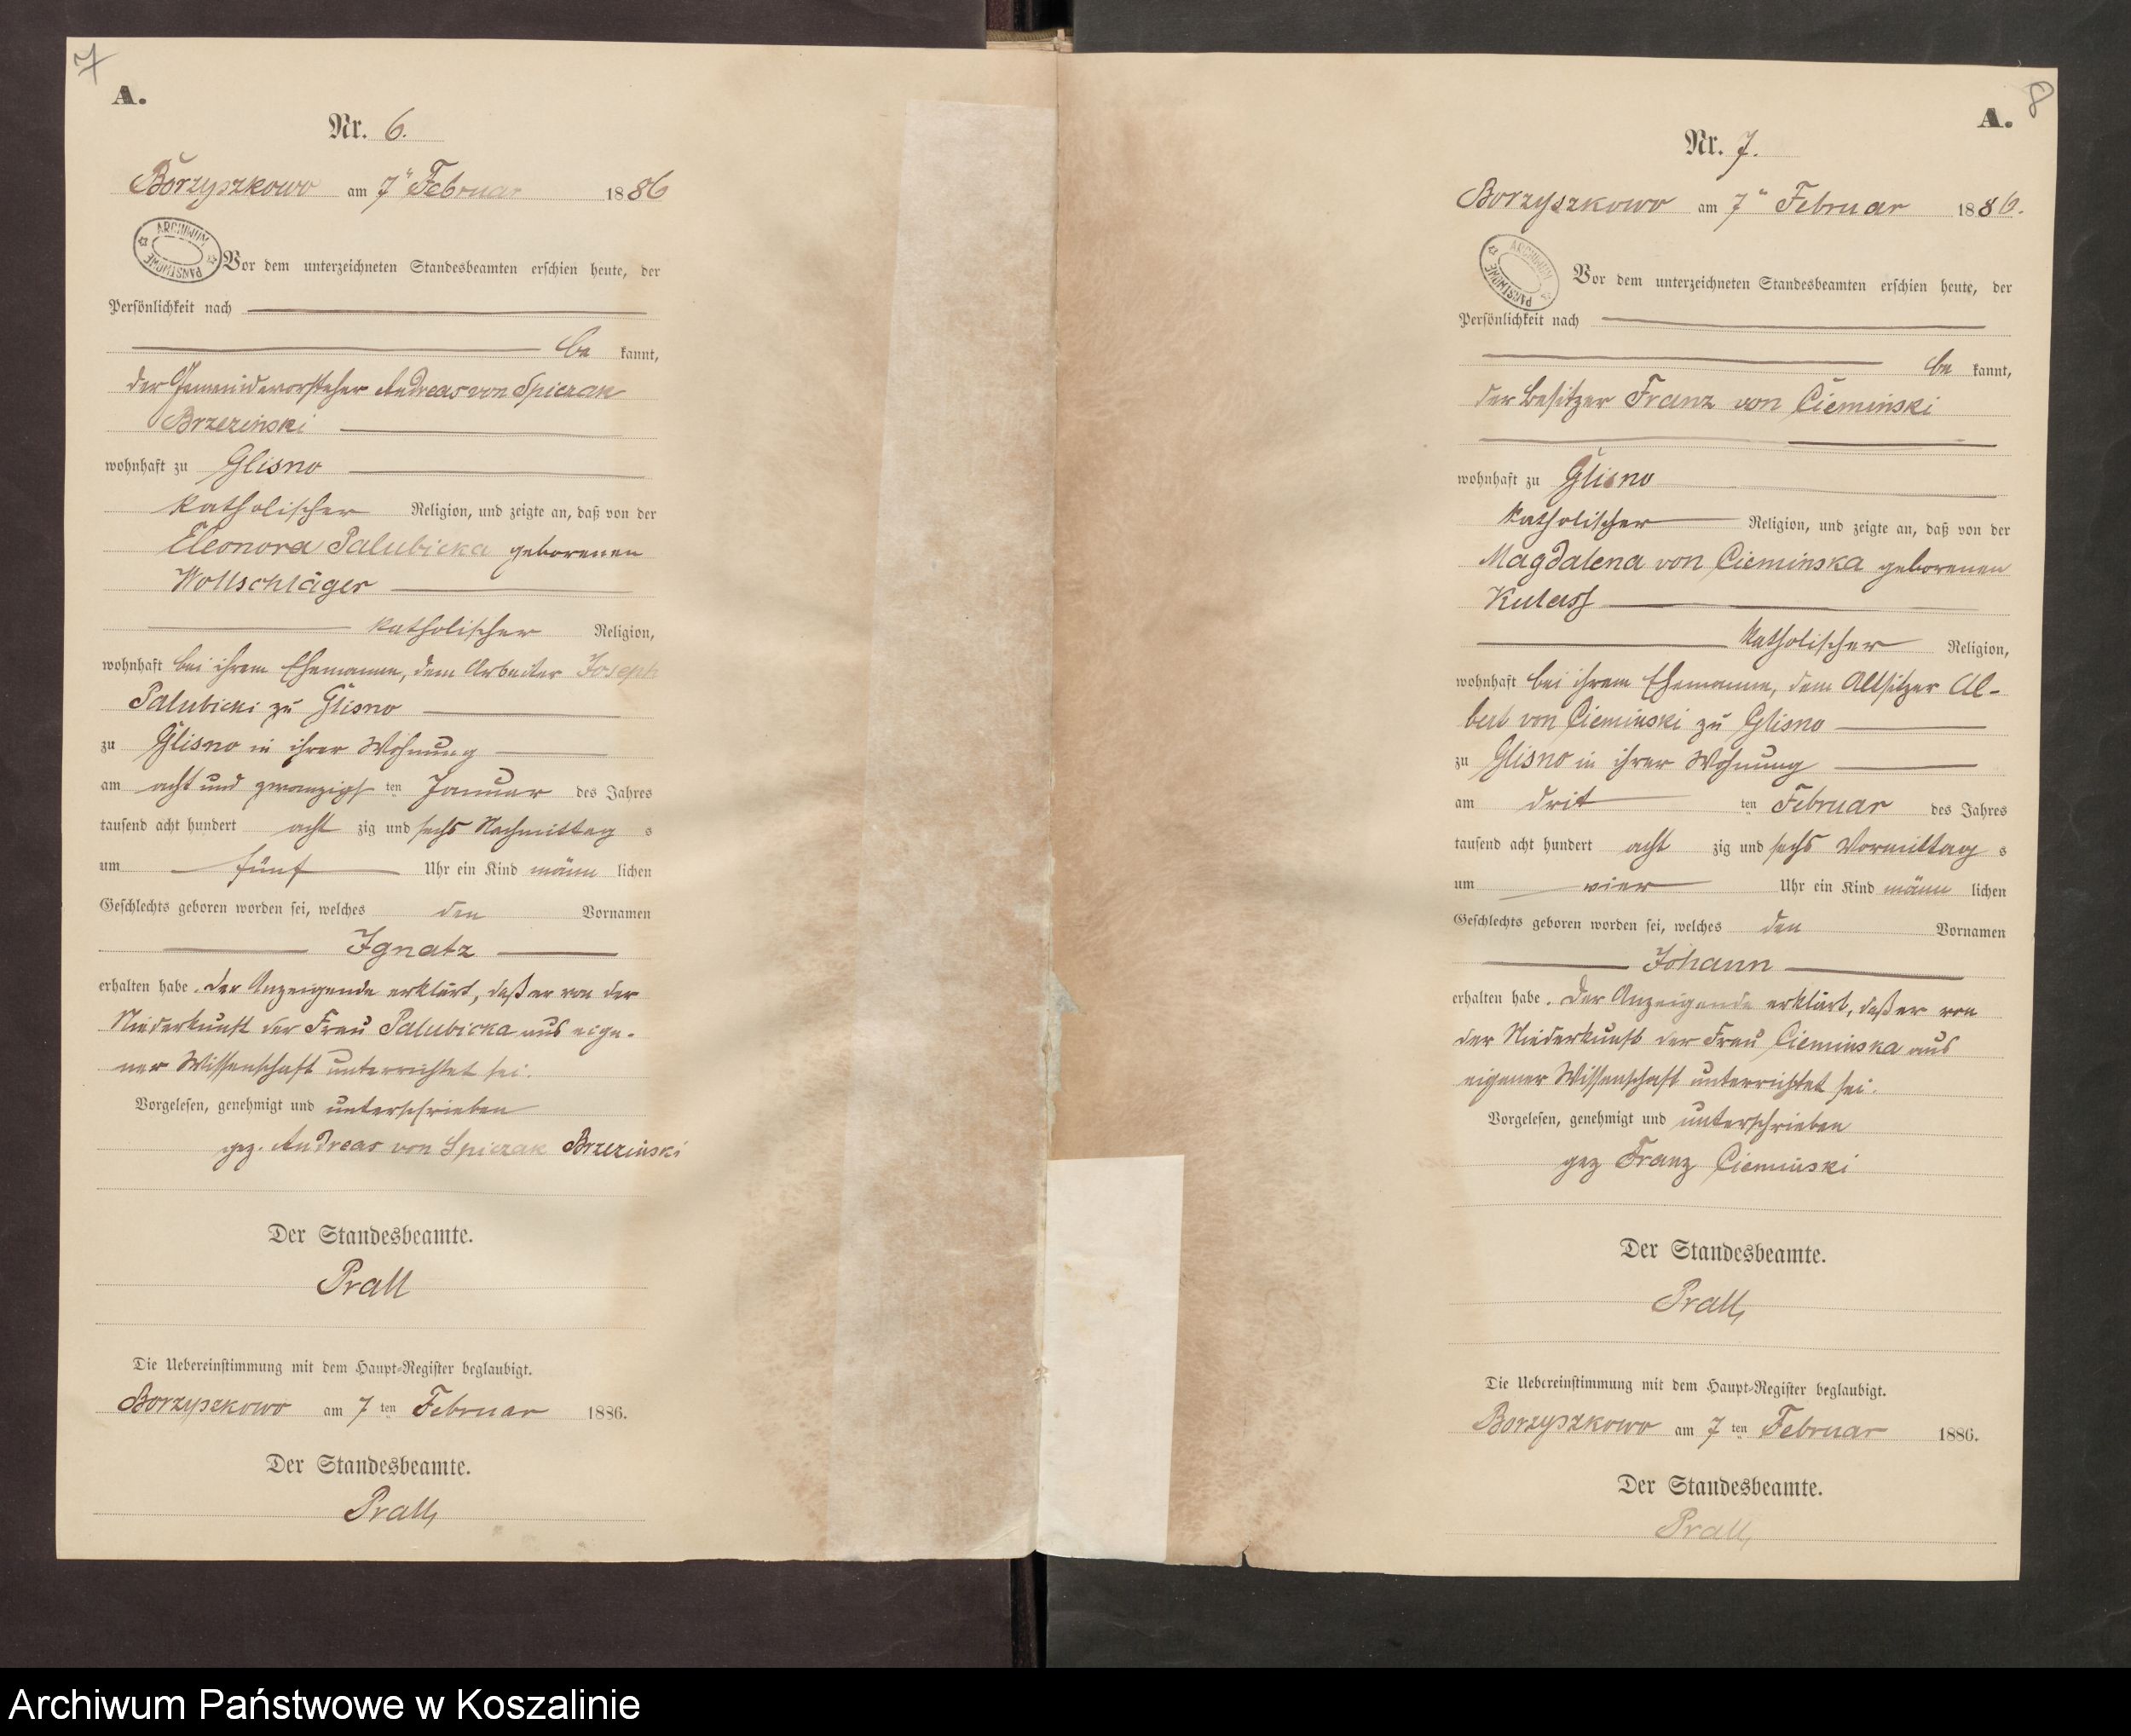 7
A.
Nr. 6.
Borzyszkowo am 7ten Februar 1886
ARCHIWUM PAŃSTWOWE
Vor dem unterzeichneten Standesbeamten erschien heute, der
Persönlichkeit nach
be kannt,
der Gemeindevorsteher Andreas von Spiczak
Brzezinski
wohnhaft zu Glisno
katholischer Religion, und zeigte an, daß von der
Eleonora Palubicka geborenen
Wollschläger
katholischer Religion,
wohnhaft bei ihrem Ehemanne, dem Arbeiter Joseph
Palubicki zu Glisno
zu Glisno in ihrer Wohnung
am acht und zwanzigsten Januar des Jahres
tausend acht hundert acht zig und sechs Nachmittag s
um fünf Uhr ein Kind männ lichen
Geschlechts geboren worden sei, welches den Vornamen
Ignatz
erhalten habe. Der Anzeigende erklärt, daß er von der
Niederkunft der Frau Palubicka aus eige-
ner Wissenschaft unterrichtet sei.
Vorgelesen, genehmigt und unterschrieben
gez. Andreas von Spiczak Brzezinski
Der Standesbeamte.
Prall
Die Uebereinstimmung mit dem Haupt-Register beglaubigt.
Borzyszkowo am 7 ten Februar 1886.
Der Standesbeamte.
Prall
8
A.
Nr. 7.
Borzyszkowo am 7ten Februar 1886.
ARCHIWUM PAŃSTWOWE
Vor dem unterzeichneten Standesbeamten erschien heute, der
Persönlichkeit nach
be kannt,
der Besitzer Franz von Cieminski
wohnhaft zu Glisno
katholischer Religion, und zeigte an, daß von der
Magdalena von Cieminska geborenen
Kulass
katholischer Religion,
wohnhaft bei ihrem Ehemanne, dem Altsitzer Al-
bert von Cieminski zu Glisno
zu Glisno in ihrer Wohnung
am drit ten Februar des Jahres
tausend acht hundert acht zig und sechs Vormittag s
um vier Uhr ein Kind männ lichen
Geschlechts geboren worden sei, welches den Vornamen
Johann
erhalten habe. Der Anzeigende erklärt, daß er von
der Niederkunft der Frau Cieminska aus
eigener Wissenschaft unterrichtet sei.
Vorgelesen, genehmigt und unterschrieben
gez Franz Cieminski
Der Standesbeamte.
Prall
Die Uebereinstimmung mit dem Haupt-Register beglaubigt.
Borzyszkowo am 7 ten Februar 1886.
Der Standesbeamte.
Prall
Archiwum Państwowe w Koszalinie